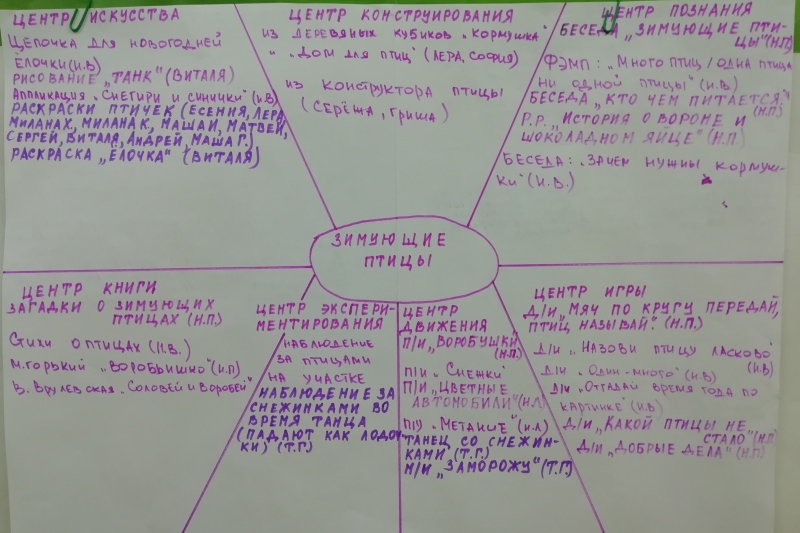 ЦЕНТР ИСКУССТВА
ЦЕПОЧКА ДЛЯ НОВОГОДНЕЙ
ЁЛОЧКИ (И.В)
РИСОВАНИЕ „ТАНК" (ВИТАЛЯ)
АППЛИКАЦИЯ „СНЕГИРИ И СИНИЧКИ" (И.В)
РАСКРАСКИ ПТИЧЕК (ЕСЕНИЯ, ЛЕРА,
МИЛАНАХ, МИЛАНАК, МАШАИ, МАТВЕЙ,
СЕРГЕЙ, ВИТАЛЯ, АНДРЕЙ, МАША Г.)
РАСКРАСКА „ЁЛОЧКА" (ВИТАЛЯ)
ЦЕНТР КОНСТРУИРОВАНИЯ
ИЗ ДЕРЕВЯНЫХ КУБИКОВ „КОРМУШКА"
И „ДОМ ДЛЯ ПТИЦ" (ЛЕРА, СОФИЯ)
ИЗ КОНСТРУКТОРА ПТИЦЫ
(СЕРЁЖА, ГРИША)
ЦЕНТР ПОЗНАНИЯ
БЕСЕДА „ЗИМУЮЩИЕ ПТИ-
ЦЫ" (Н.П)
ФЭМП: „МНОГО ПТИЦ / ОДНА ПТИЦА
НИ ОДНОЙ ПТИЦЫ" (И.В)
БЕСЕДА „КТО ЧЕМ ПИТАЕТСЯ"
(Н.П)
Р.Р. „ИСТОРИЯ О ВОРОНЕ И
ШОКОЛАДНОМ ЯЙЦЕ" (Н.П.)
БЕСЕДА: „ЗАЧЕМ НУЖНЫ КОРМУШ-
КИ" (И.В.)
ЗИМУЮЩИЕ
ПТИЦЫ
ЦЕНТР КНИГИ
ЗАГАДКИ О ЗИМУЮЩИХ
ПТИЦАХ (Н.П.)
СТИХИ О ПТИЦАХ (И.В.)
М.ГОРЬКИЙ „ВОРОБЬИШКО" (И.П)
В. ВРУЛЕВСКАЯ „СОЛОВЕЙ И ВОРОБЕЙ"
ЦЕНТР ЭКСПЕРИ-
МЕНТИРОВАНИЯ
НАБЛЮДЕНИЕ
ЗА ПТИЦАМИ
НА УЧАСТКЕ
НАБЛЮДЕНИЕ ЗА
СНЕЖИНКАМИ ВО
ВРЕМЯ ТАНЦА
(ПАДАЮТ КАК ЛОДОЧ-
КИ) (Т.Г.)
ЦЕНТР
ДВИЖЕНИЯ
П/И „ВОРОБУШКИ"
(Н.П)
П/И „СНЕЖКИ"
П/И „ЦВЕТНЫЕ
АВТОМОБИЛИ" (Н.П.)
П/У „МЕТАНИЕ" (И.П.)
ТАНЕЦ СО СНЕЖИН-
КАМИ" (Т.Г.)
М/И „ЗАМОРОЖУ" (Т.Г.)
ЦЕНТР ИГРЫ
Д/И „МЯЧ ПО КРУГУ ПЕРЕДАЙ,
ПТИЦ НАЗЫВАЙ". (Н.П.)
Д/И „НАЗОВИ ПТИЦУ ЛАСКОВО"
(И.В)
Д/И „ОДИН-МНОГО" (И.В)
Д/И „ОТГАДАЙ ВРЕМЯ ГОДА ПО
КАРТИНКЕ" (И.В)
Д/И „КАКОЙ ПТИЦЫ НЕ
СТАЛО" (Н.П)
Д/И „ДОБРЫЕ ДЕЛА" (Н.П.)